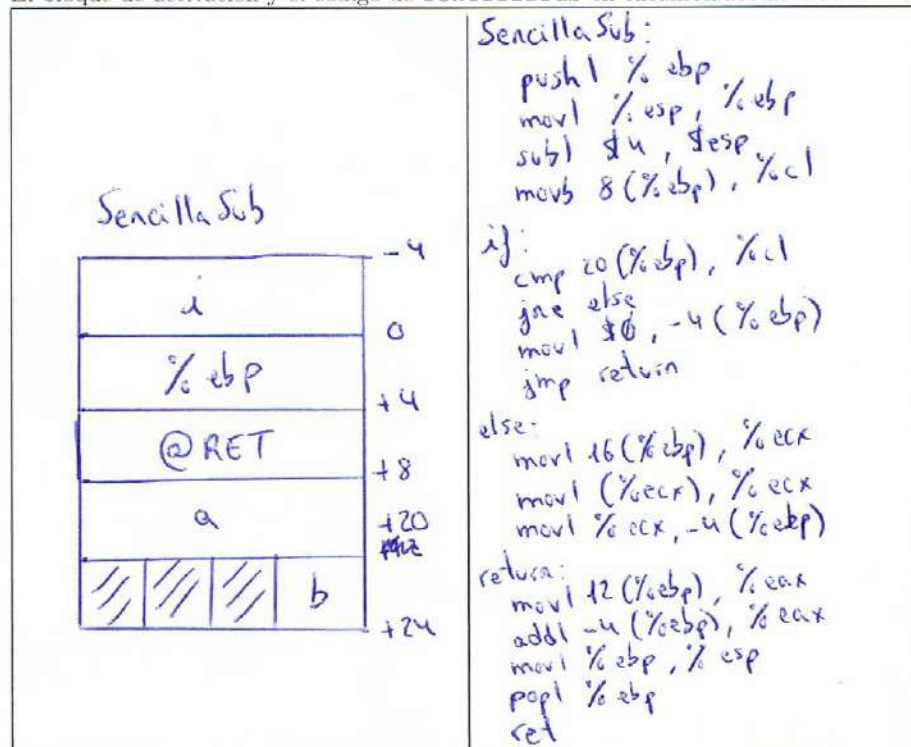 El bloque de activación y el código de SencillaSub
Sencilla Sub
-4
i
0
% ebp
+4
@RET
+8
a
+20
b
+24
Sencilla Sub:
pushl % ebp
movl % esp, % ebp
subl $4, $esp
movb 8(%ebp), %cl
if:
cmp 20(%ebp), %cl
jne else
movl $0, -4(%ebp)
jmp return
else:
movl 16(%ebp), %ecx
movl (%ecx), %ecx
movl %ecx, -4(%ebp)
return:
movl 12(%ebp), %eax
addl -4(%ebp), %eax
movl %ebp, %esp
popl %ebp
ret